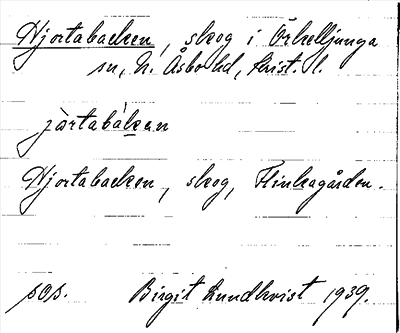 Hjortabacken, skog i Örkelljunga
sn, N. Åsbo hd, Krist. l.
jòrtabák̲en
Hjortabacken, skog, Flinkagården.
sos. Birgit Lundkvist 1939.